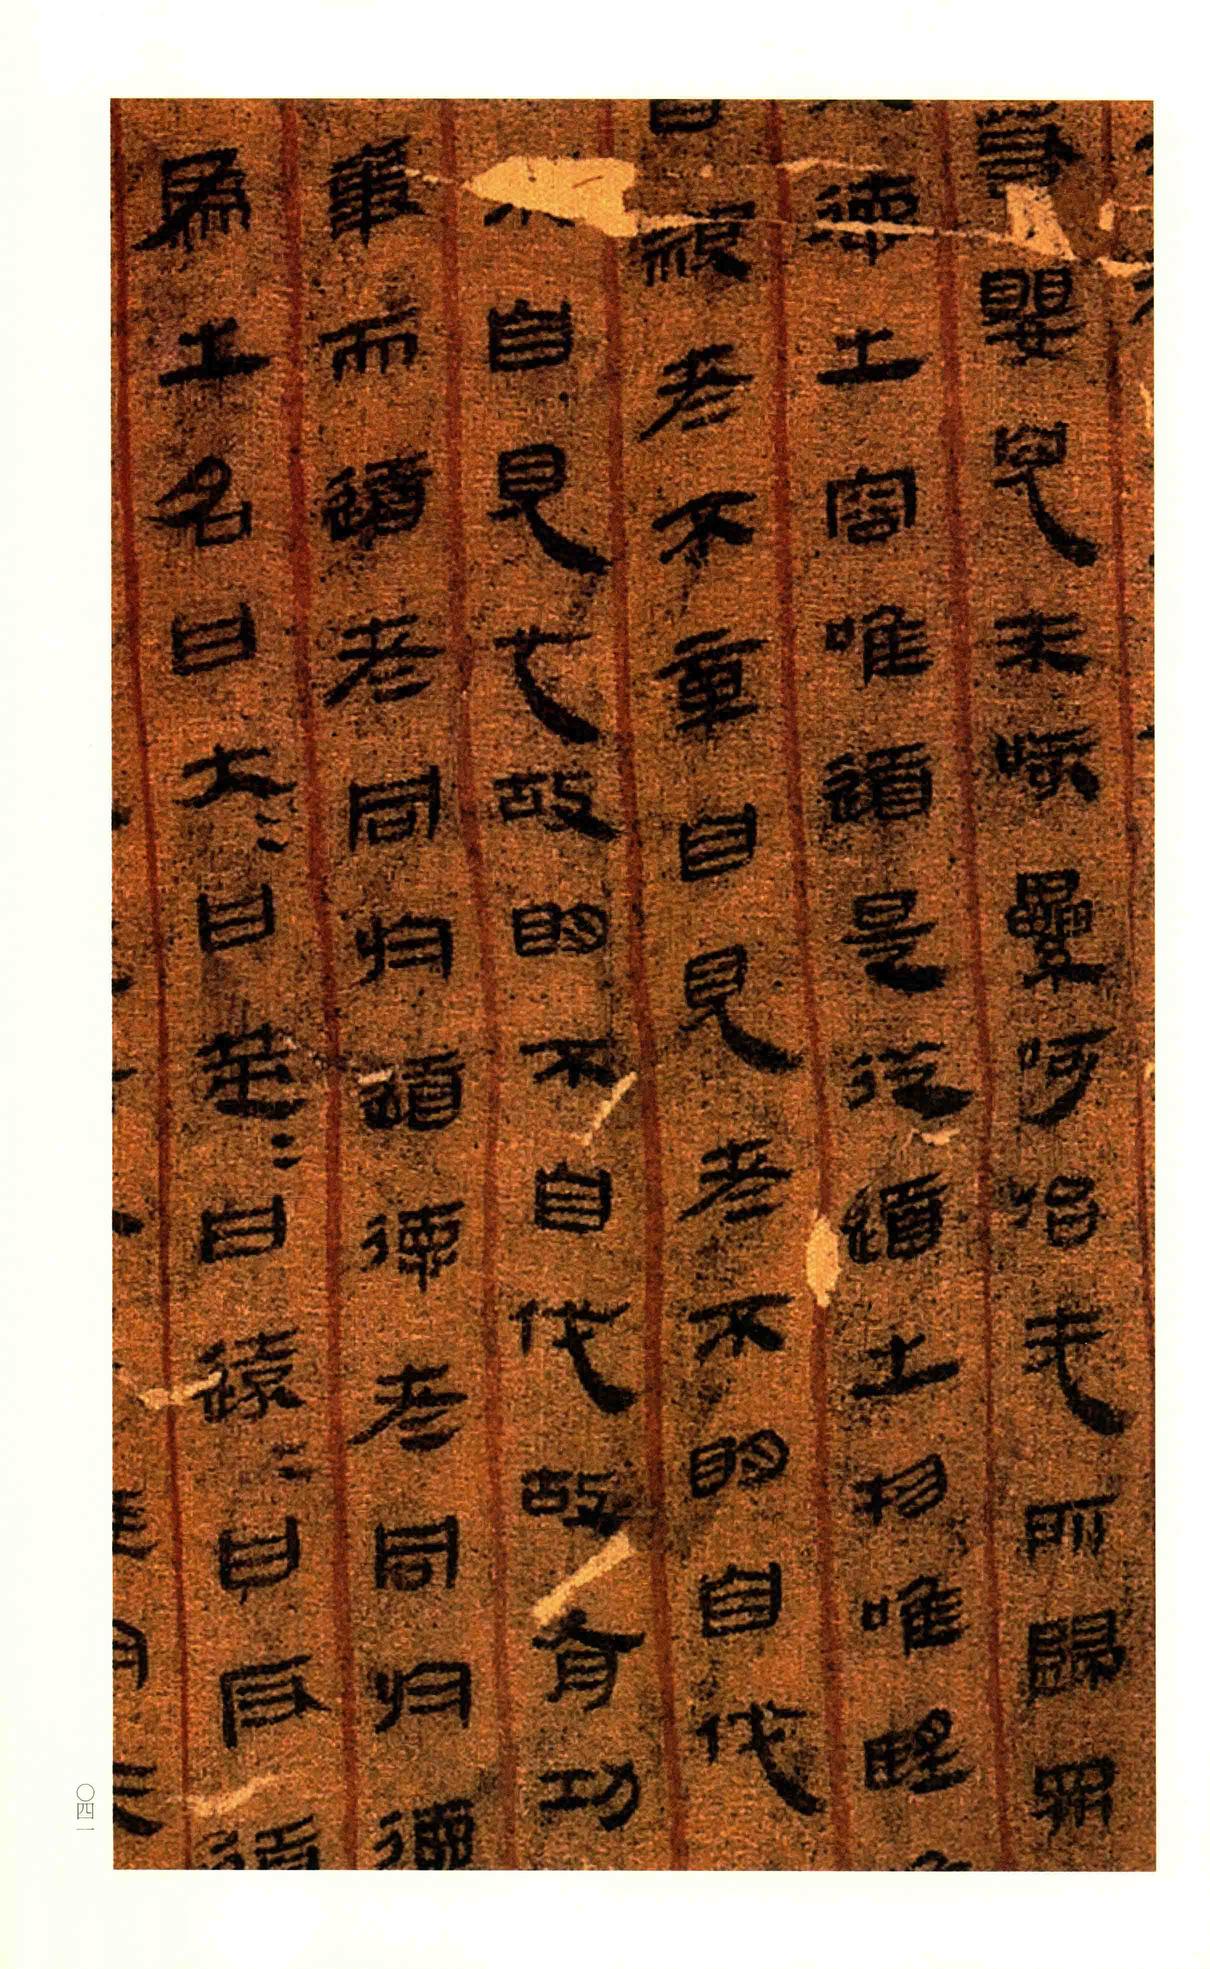 若嬰兒未咳纍呵佁无所歸眾
德之容唯道是從道之物唯朢
視者不章自見者不明自伐
自見也故明不自伐故有功
事而道者同於道德者同於德
為之名曰大=曰筮=曰遠=曰反道
〇四一